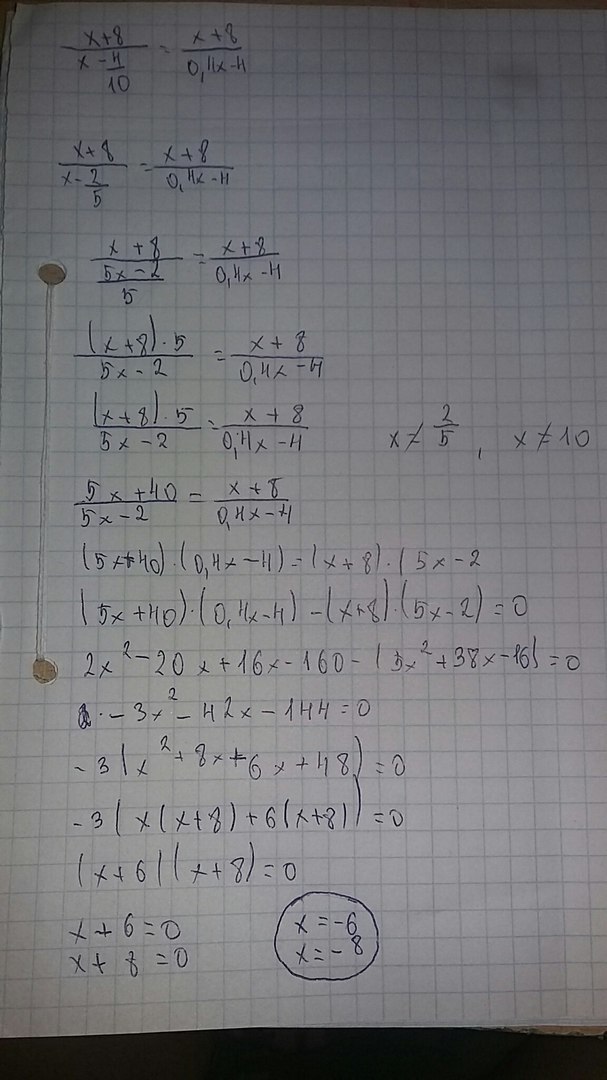 x+8/(x-4/10) = x+8/(0,4x-4)
x+8/(x-2/5) = x+8/(0,4x-4)
x+8/((5x-2)/5) = x+8/(0,4x-4)
(x+8)·5/(5x-2) = x+8/(0,4x-4)
(x+8)·5/(5x-2) = x+8/(0,4x-4) x≠2/5, x≠10
5x+40/(5x-2) = x+8/(0,4x-4)
(5x+40)·(0,4x-4)=(x+8)·(5x-2
(5x+40)·(0,4x-4)-(x+8)·(5x-2)=0
2x²-20x+16x-160-(5x²+38x-16)=0
-3x²-42x-144=0
-3(x²+8x+6x+48)=0
-3(x(x+8)+6(x+8))=0
(x+6)(x+8)=0
x+6=0 x=-6
x+8=0 x=-8